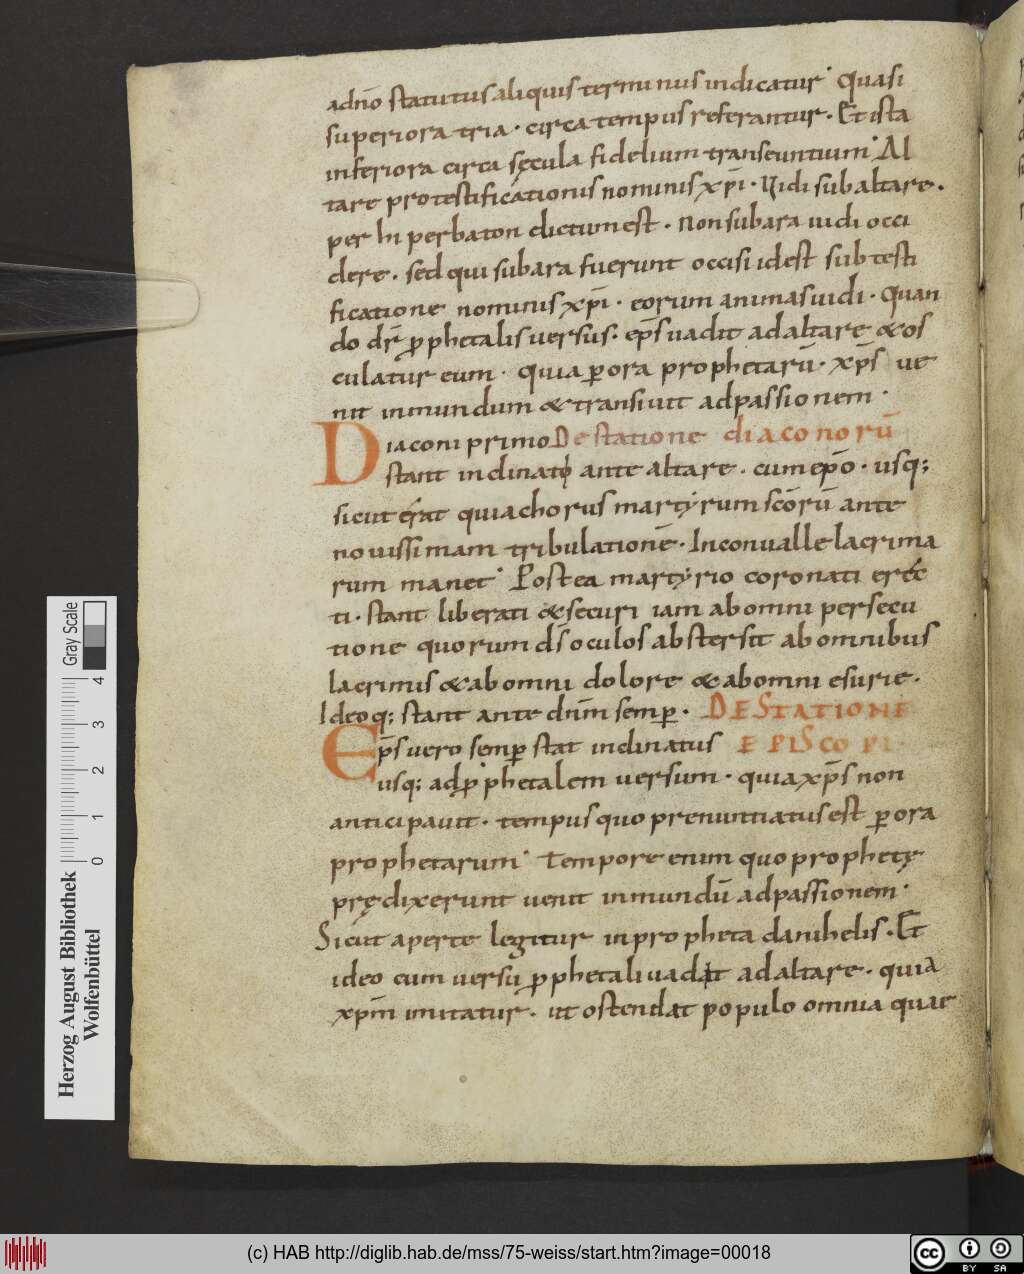 adno statutus aliquis terminus indicatur· Quasi
superiora tria· circa tempus referantur· Et ista
inferiora circa sęcula fidelium transeuntium· Al
tare protestificationis nominis xp̄i· Uidi sub altare·
per hi perbaton dictum est· Non sub ara uidi occi
dere· sed qui sub ara fuerunt occisi id est sub testi
ficatione nominis xp̄i· eorum animas uidi· Quan
do dr̄ ꝓphetalis uersus· ep̄s uadit ad altare & os
culatur eum· quia ꝑ ora prophetarū· xp̄s ue
nit in mundum & transiuit ad passionem·
Diaconi primo De statione diaconorū
stant inclinati ante altare· cum ep̄o· usq;
sicut erat quia chorus martyrum sc̄orū ante
nouissimam tribulationē· In conualle lacrima
rum manet· Postea martyrio coronati erec
ti· stant liberati & securi iam ab omni persecu
tione quorum ds̄ oculos abstersit ab omnibus
lacrimis & ab omni dolore & ab omni esurie·
Ideoq; stant ante dn̄m semꝑ· DE STATIONE
Ep̄s uero semꝑ stat inclinatus EPISCOPI
usq; ad ꝓphetalem uersum· quia xp̄s non
anticipauit· tempus quo prenuntiatus est ꝑ ora
prophetarum· Tempore enim quo prophetę
prędixerunt uenit in mundū ad passionem·
Sicut aperte legitur in propheta danihelis· Et
ideo cum uersu ꝓphetali uadit ad altare· quia
xp̄m imitatur· ut ostendat populo omnia quae
Herzog August Bibliothek
Wolfenbüttel
0 1 2 3 4
Gray Scale
(c) HAB http://diglib.hab.de/mss/75-weiss/start.htm?image=00018
cc BY SA